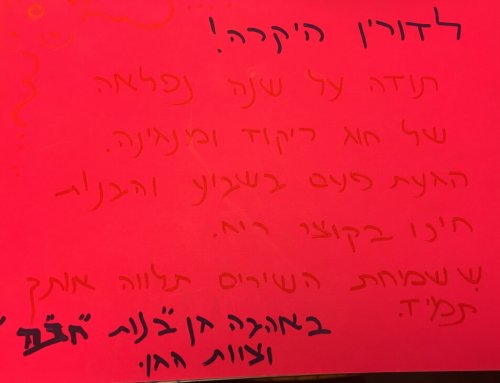 לדורין היקרה!
תודה על שנה נפלאה
של חוג ריקוד ומנגינה.
הגעת פעם בשבוע והבנות
חיכו בקוצר רוח.
ששמחת השירים תלווה אותך
תמיד.
באהבה מן בנות
וצוות הגן.